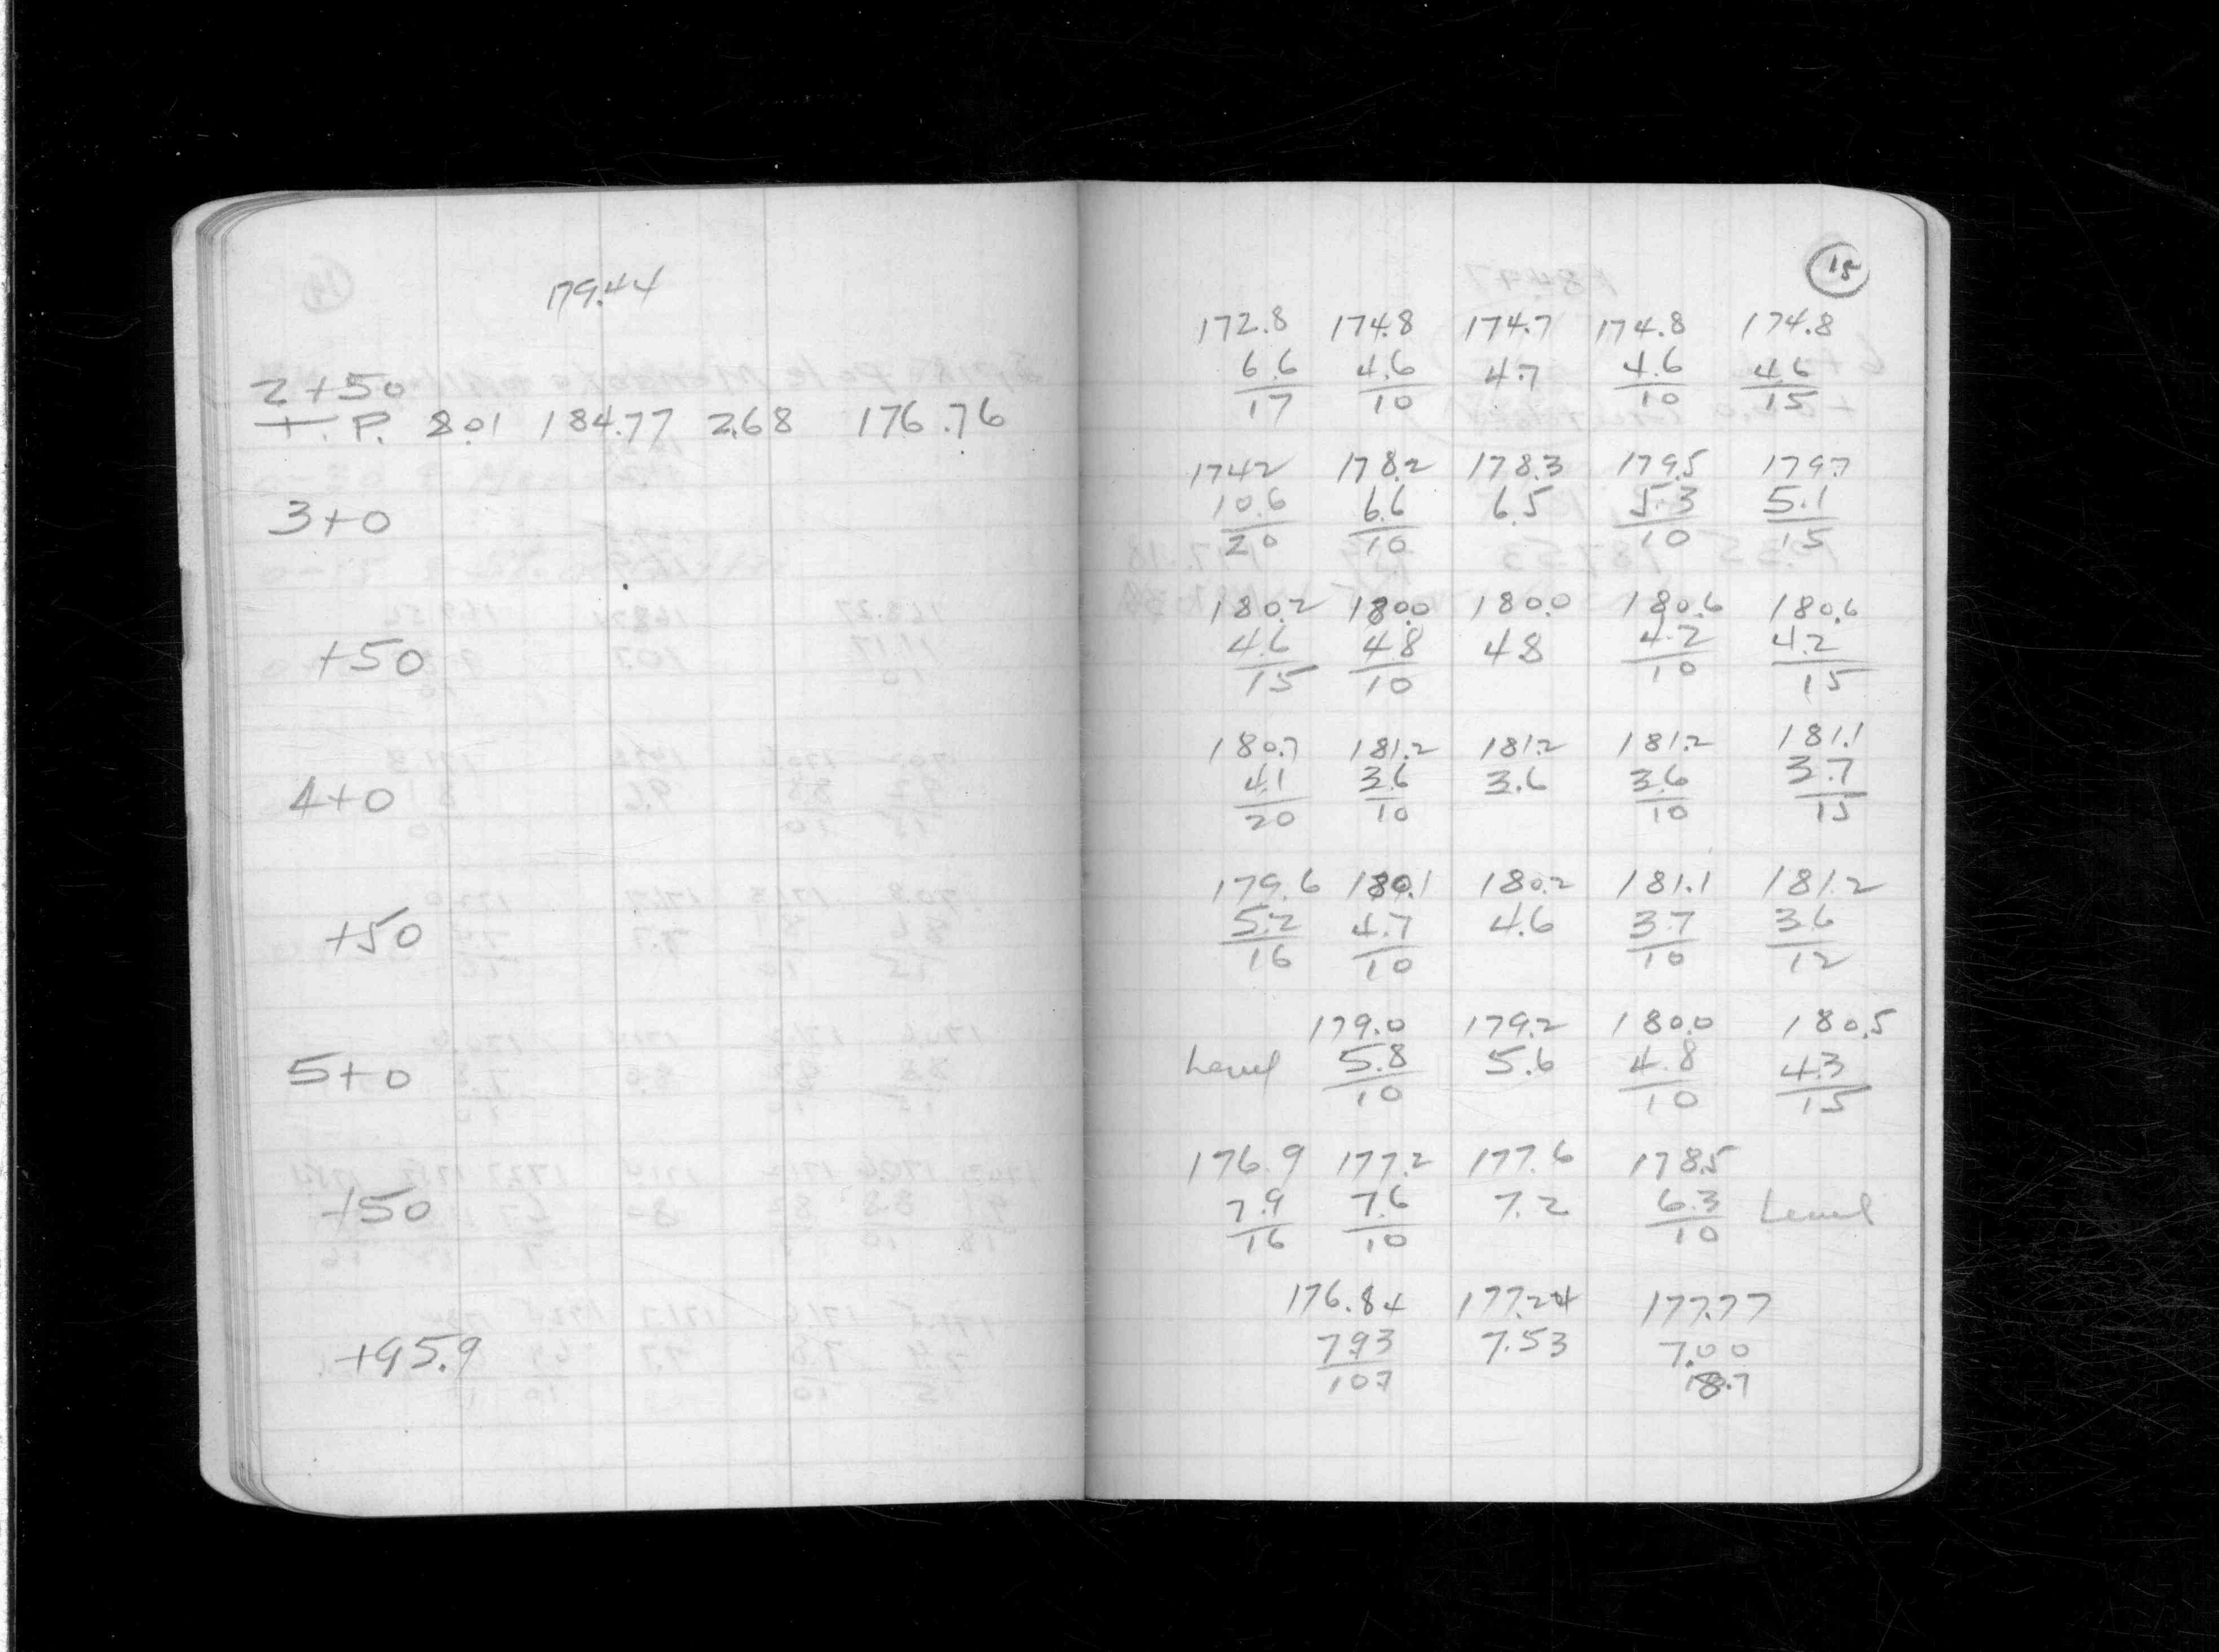 179.44
2+50
T.P. 8.01 184.77 2.68 176.76
3+0
+50
4+0
+50
5+0
+50
+95.9
15
172.8 174.8 174.7 174.8 174.8
6.6 4.6 4.7 4.6 4.6
17 10 10 15
174.2 178.2 178.3 179.5 179.7
10.6 6.6 6.5 5.3 5.1
20 10 10 15
180.2 180.0 180.0 180.6 180.6
4.6 4.8 4.8 4.2 4.2
15 10 10 15
180.7 181.2 181.2 181.2 181.1
4.1 3.6 3.6 3.6 3.7
20 10 10 15
179.6 180.1 180.2 181.1 181.2
5.2 4.7 4.6 3.7 3.6
16 10 10 12
179.0 179.2 180.0 180.5
Level 5.8 5.6 4.8 4.3
10 10 15
176.9 177.2 177.6 178.5
7.9 7.6 7.2 6.3 Level
16 10 10
176.84 177.24 177.77
7.93 7.53 7.00
10.7 18.7